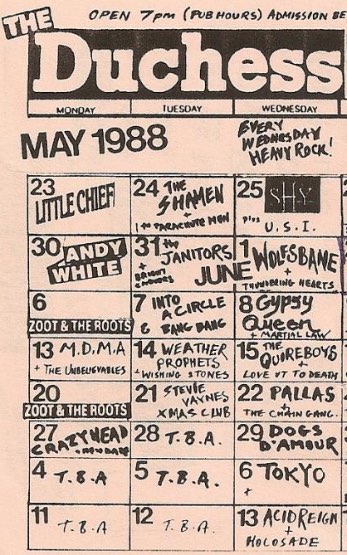 OPEN 7pm (PUB HOURS) ADMISSION BE
THE
Duchess
MONDAY TUESDAY WEDNESDAY
MAY 1988
EVERY
WEDNESDAY
HEAVY ROCK!
23 LITTLE CHIEF
24 THE
SHAMEN
+
1000 PARACHUTE MEN
25 SHY
plus
U.S.I.
30 ANDY
WHITE
31 THE
JANITORS
+
BRIGHT
COLOURS
JUNE
1 WOLFSBANE
+
THUNDERING HEARTS
6
ZOOT & THE ROOTS
7 INTO
A CIRCLE
& BANG BANG
8 GYPSY
QUEEN
+ MARTIAL LAW
13 M.D.M.A
+ THE UNBELIEVABLES
14 WEATHER
PROPHETS
+ WISHING STONES
15 THE
QUIREBOYS
+
LOVE UT TO DEATH
20
ZOOT & THE ROOTS
21 STEVIE
VAYNES
XMAS CLUB
22 PALLAS
+
THE CHAIN GANG.
27
CRAZYHEAD
28 T.B.A.
29 DOGS
D'AMOUR
4 T.B.A
5 T.B.A.
6 TOKYO
+
11 T.B.A
12 T.B.A.
13 ACID REIGN
+
HOLOSADE